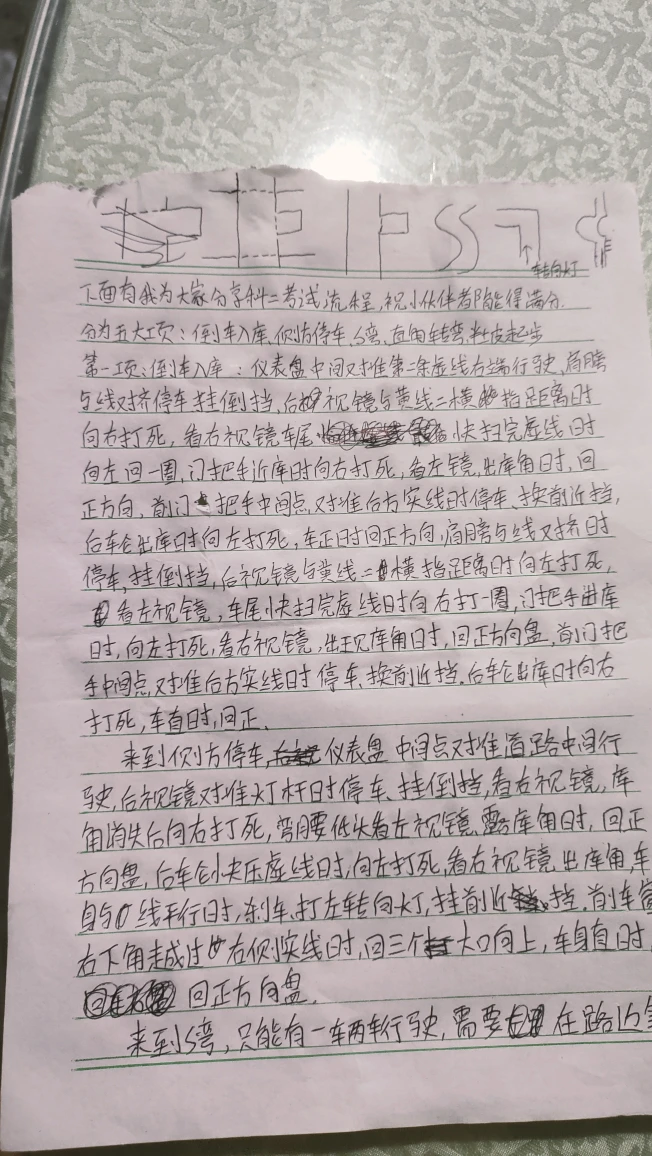 转向灯
下面有我为大家分享科二考试流程,祝小伙伴都能得满分.
分为五大项:倒车入库,侧方停车,S弯,直角转弯,半坡起步
第一项:倒车入库:仪表盘中间对准第二条虚线右端行驶,肩膀
与线对挤停车,挂倒挡,后视镜与黄线二横指距离时
向右打死,看右视镜车尾快扫完虚线时
向左回一圈,门把手近库时向右打死,看左镜,出库角时,回
正方向,前门把手中间点,对准后方实线时停车、换前近挡,
后车仑出库时向左打死,车正时回正方向,肩膀与线对挤时
停车,挂倒挡,后视镜与黄线二横指距离时向左打死,
看左视镜,车尾快扫完虚线时向右打一圈,门把手出库
时,向左打死,看右视镜,出现库角时,回正方向盘,前门把
手中间点对准后方实线时停车、换前近挡.后车仑出库时向右
打死,车直时,回正.
来到侧方停车,仪表盘中间点对准道路中间行
驶,后视镜对准灯杆时停车、挂倒挡,看右视镜,库
角消失后向右打死,弯腰低头看左视镜,露库角时,回正
方向盘,后车仑快压虚线时,向左打死,看右视镜出库角,车
身与线平行时,刹车、打左转向灯,挂前近挡.前车窗
右下角越过右侧实线时,回三个大口向上,车身直时,
回正方向盘.
来到S弯,只能有一车两车行驶,需要在路边